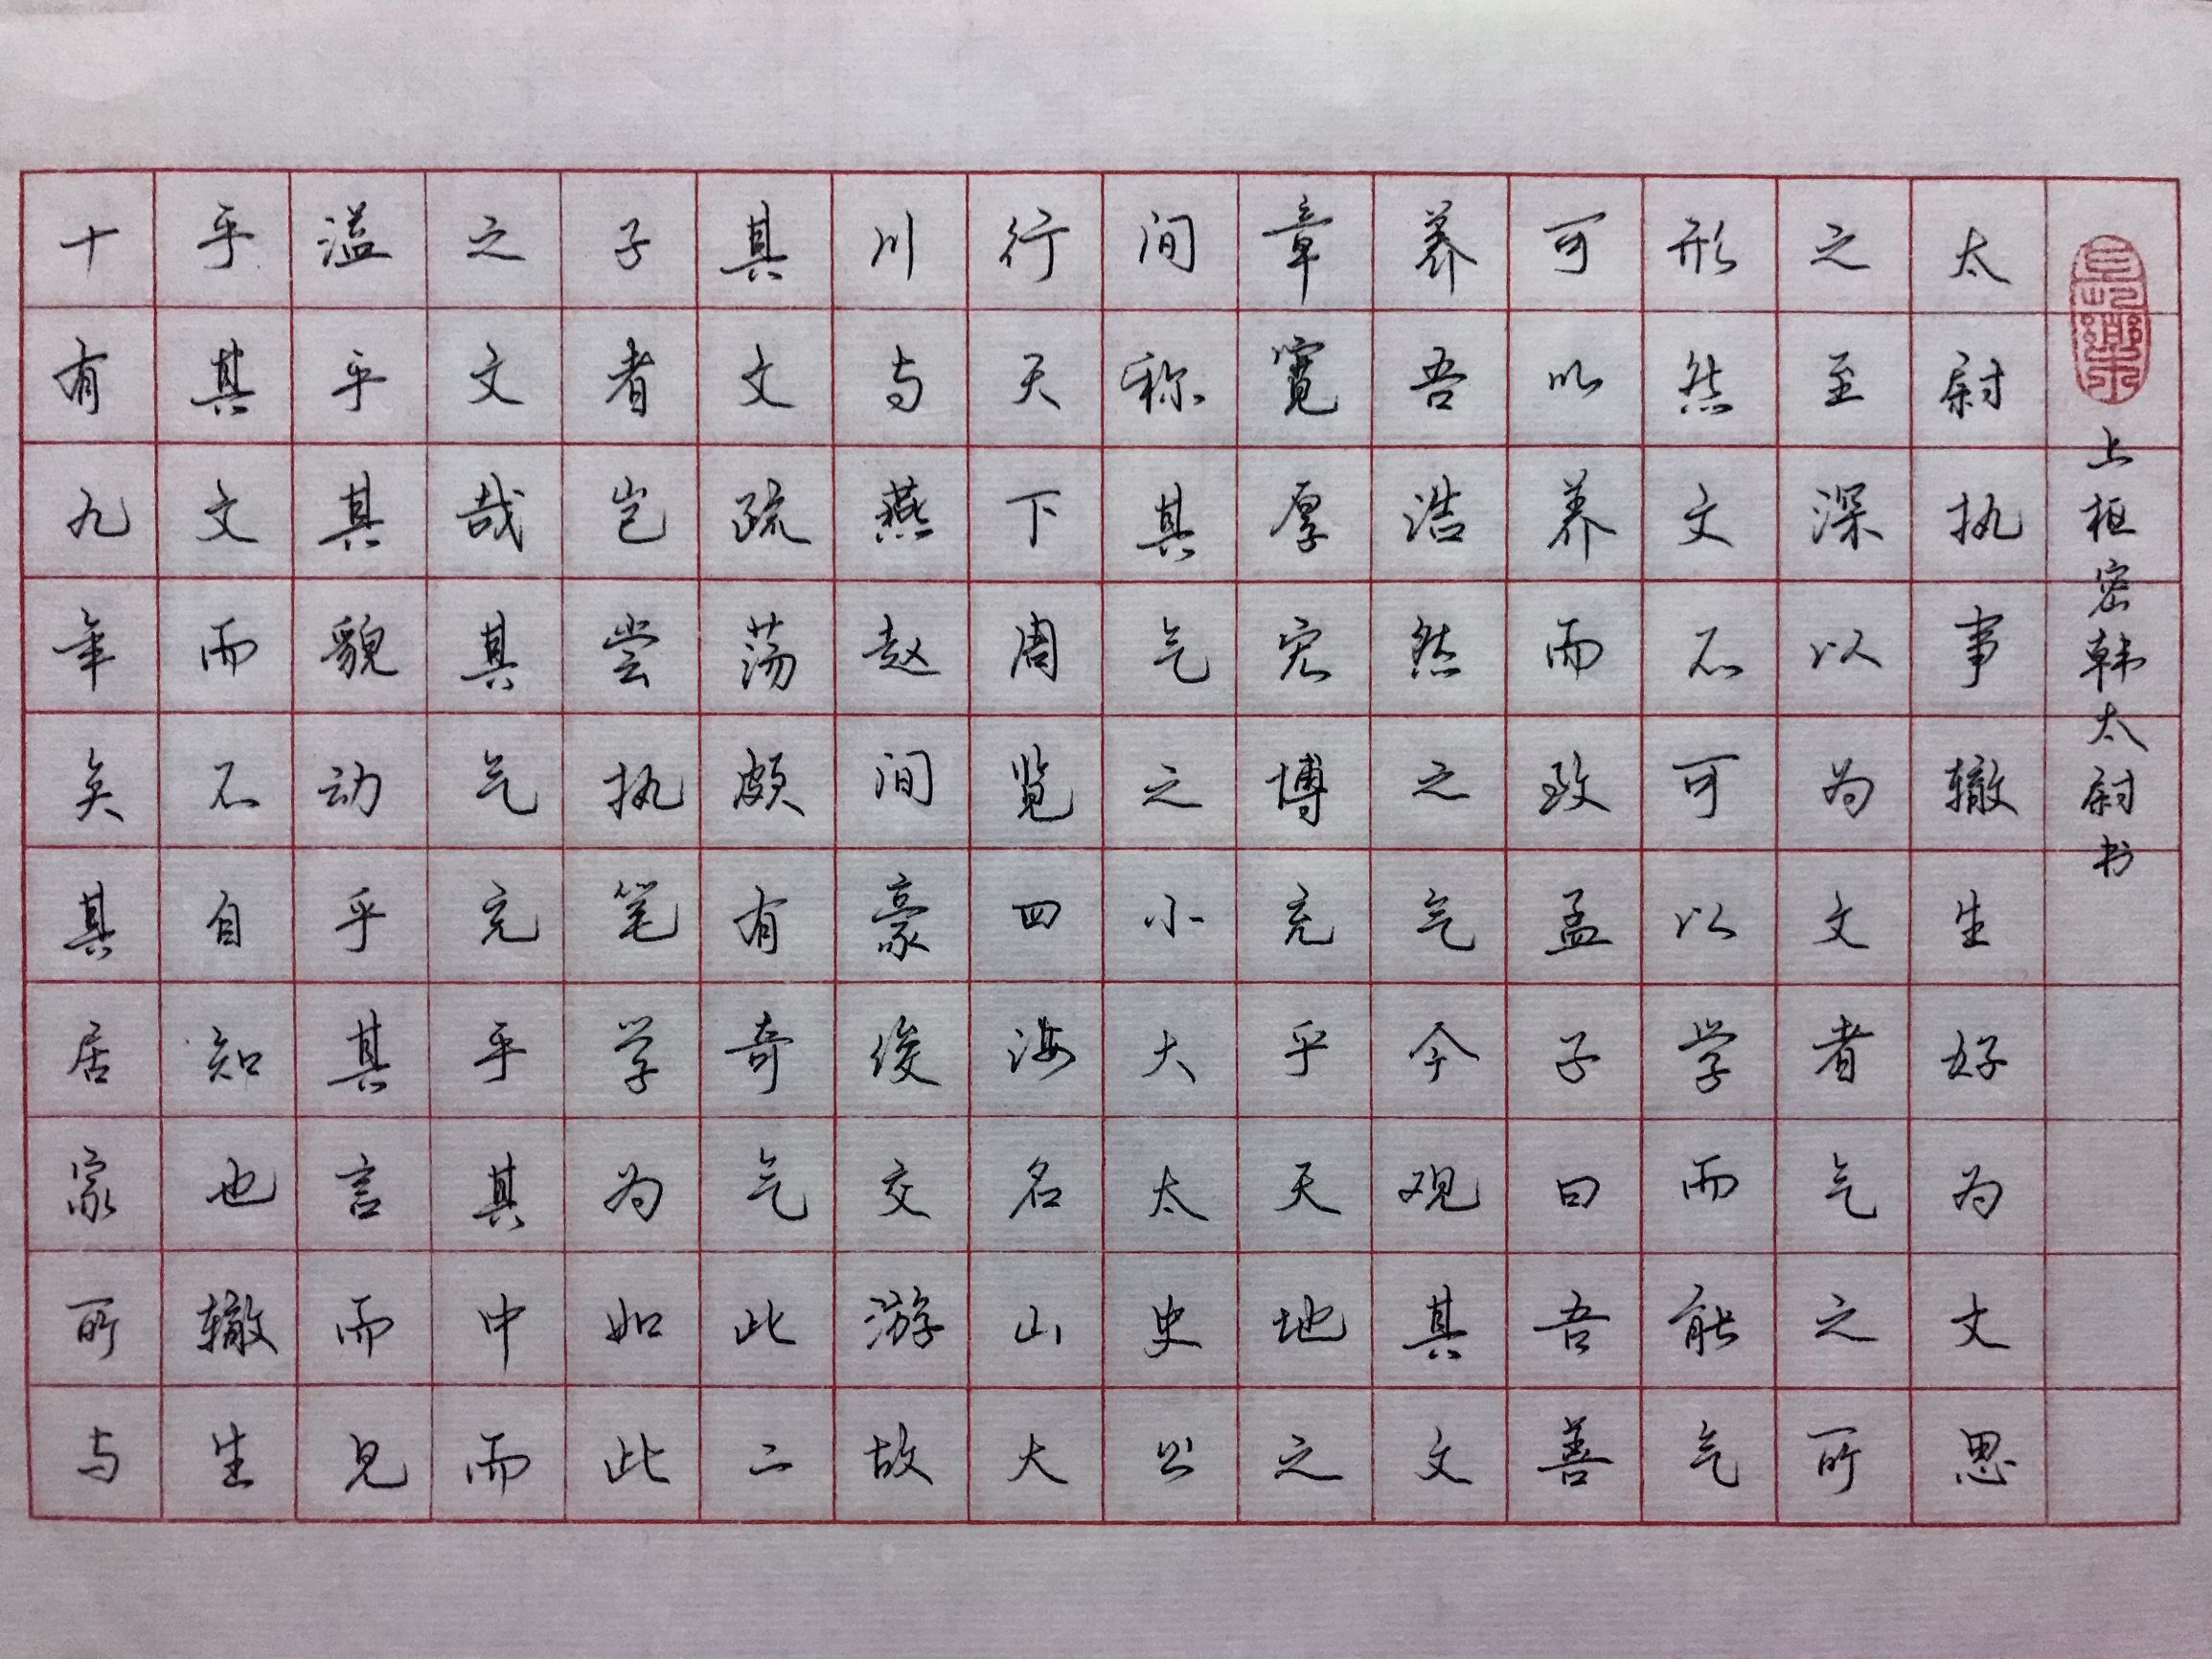 上枢密韩太尉书
太尉执事辙生好为文思
之至深以为文者气之所
形然文不可以学而能气
可以养而致孟子曰吾善
养吾浩然之气今观其文
章寬厚宏博充乎天地之
间称其气之小大太史公
行天下周览四海名山大
川与燕赵间豪俊交游故
其文疏荡颇有奇气此二
子者岂尝执笔学为如此
之文哉其气充乎其中而
溢乎其貌动乎其言而见
乎其文而不自知也辙生
十有九年矣其居家所与